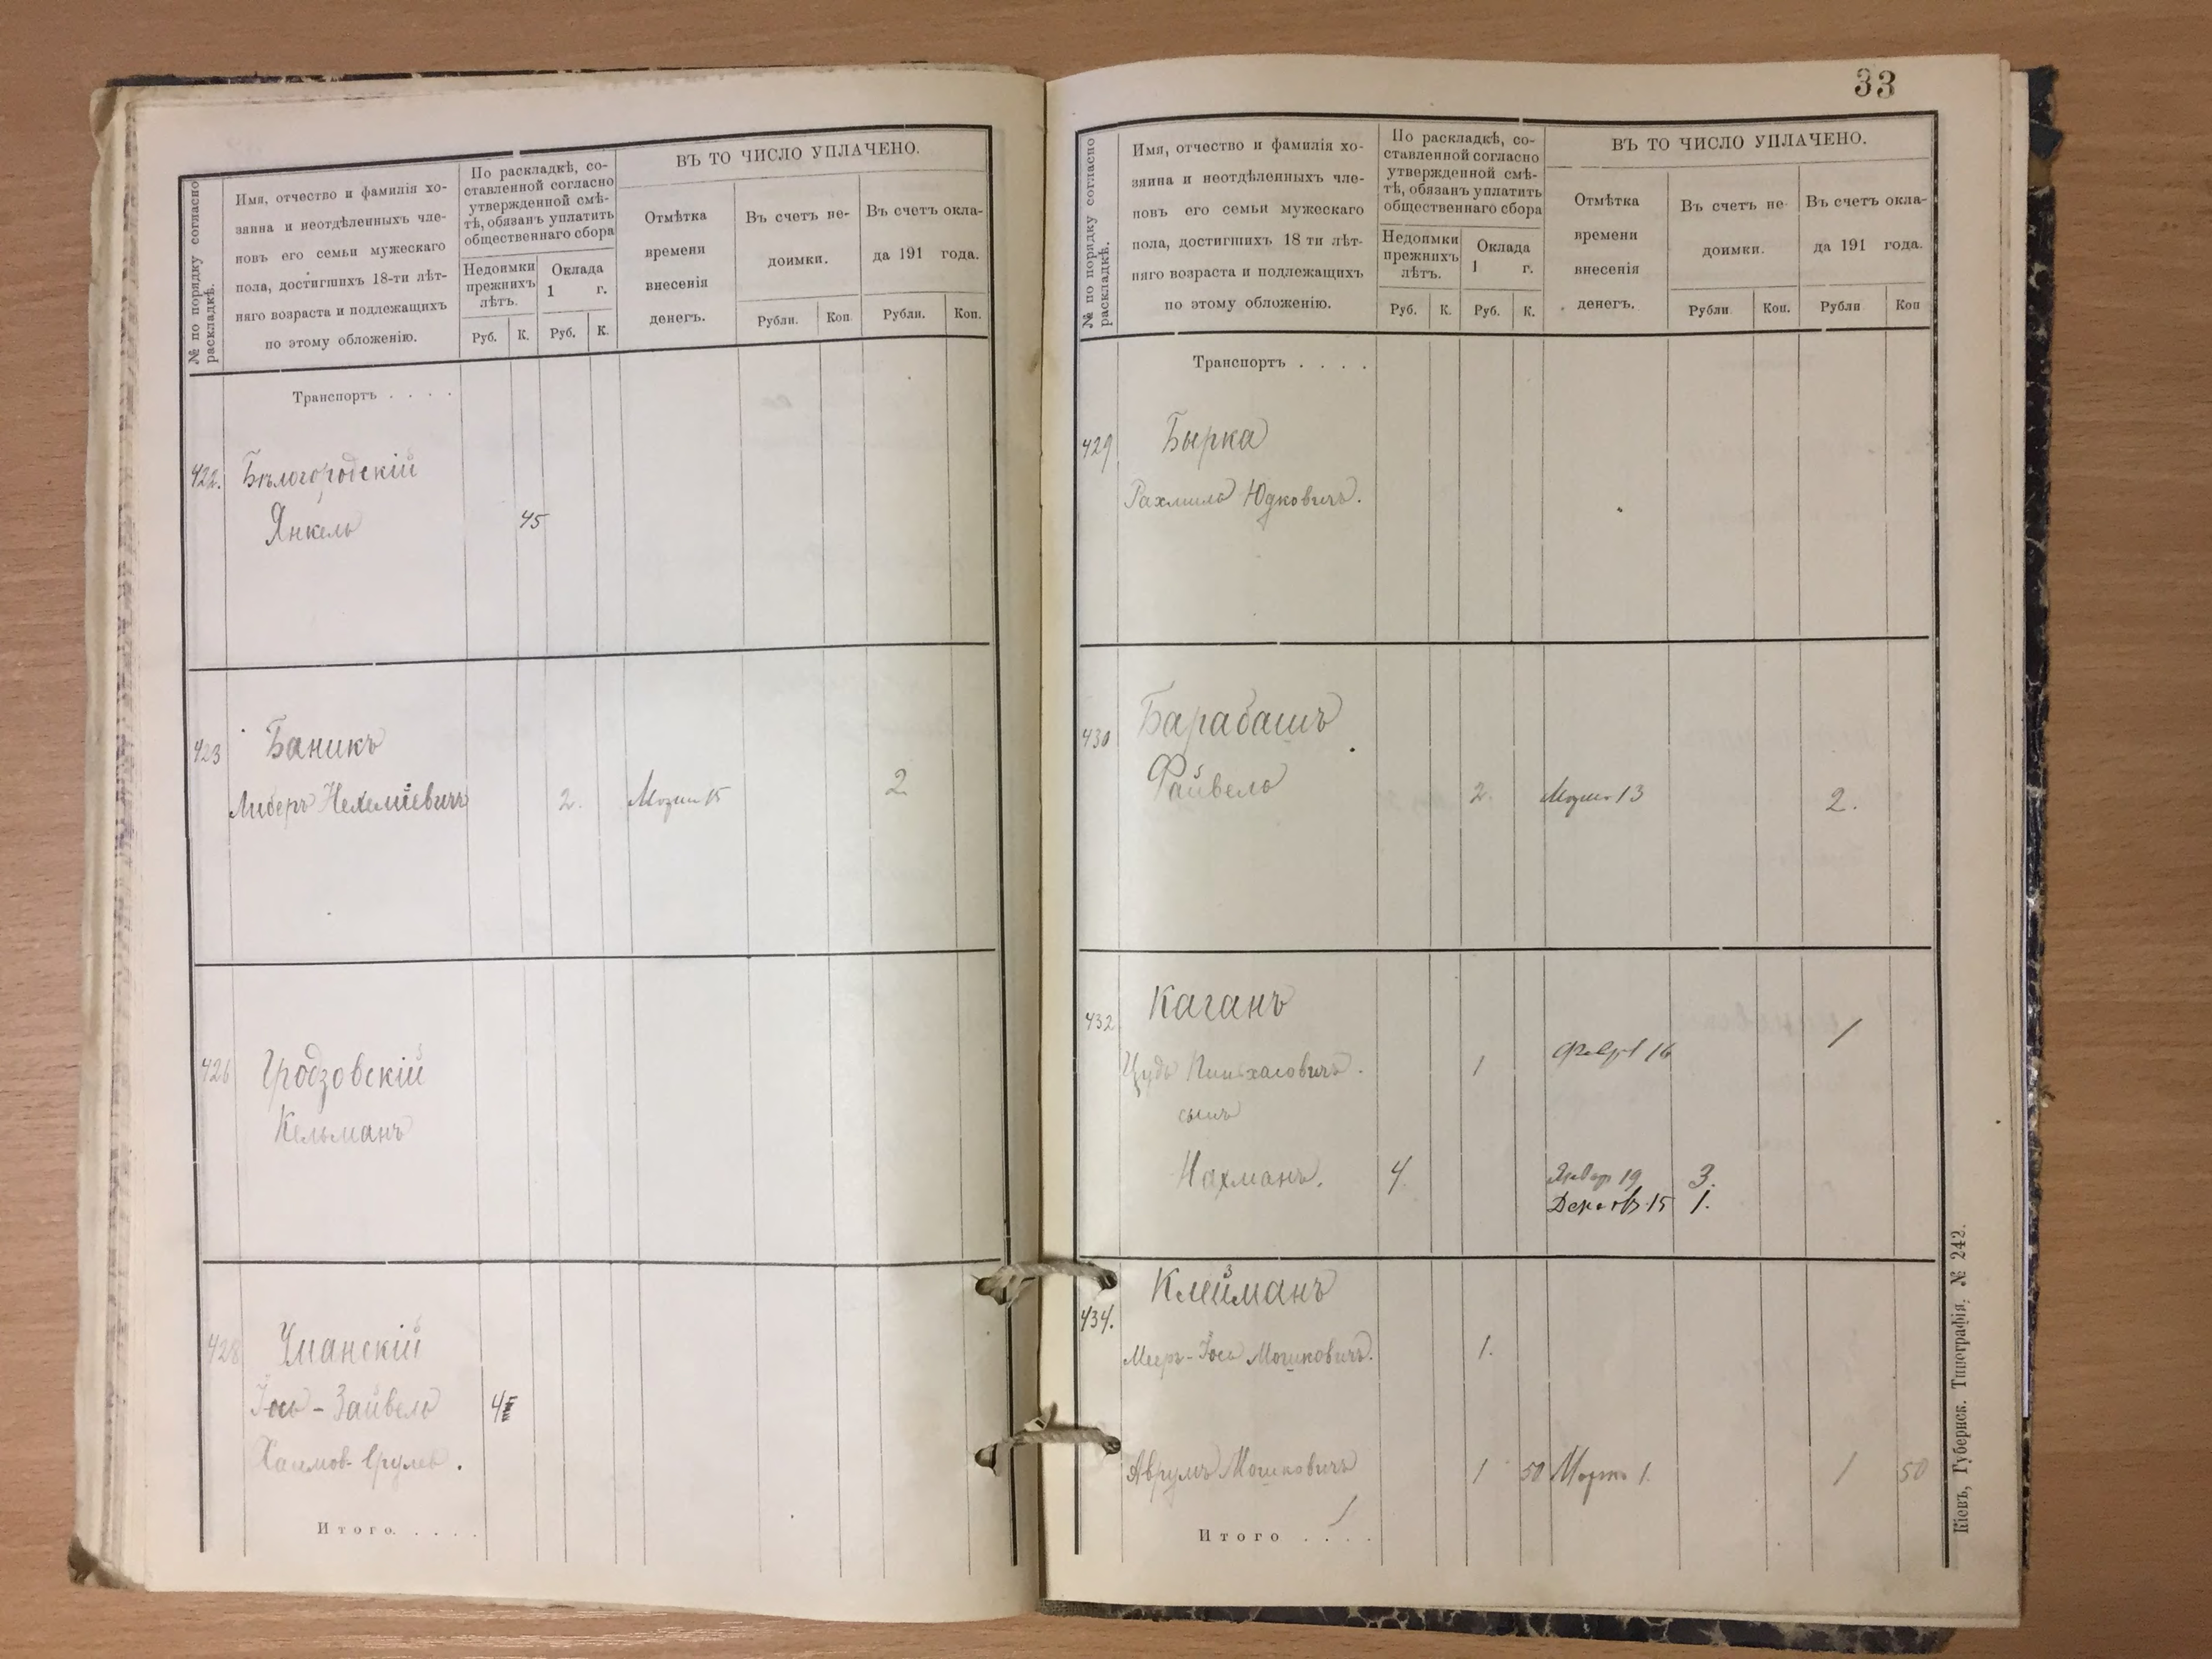 № по порядку согласно
раскладкѣ.
Имя, отчество и фамилія хо-
зяина и неотдѣленныхъ чле-
новъ его семьи мужескаго
пола, достигшихъ 18-ти лѣт-
няго возраста и подлежащихъ
по этому обложенію.
По раскладкѣ, со-
ставленной согласно
утвержденной смѣ-
тѣ, обязанъ уплатить
общественнаго сбора
Недоимки
прежнихъ
лѣтъ.
Оклада
1 г.
Руб. К. Руб. К.
ВЪ ТО ЧИСЛО УПЛАЧЕНО.
Отмѣтка
времени
внесенія
денегъ.
Въ счетъ не-
доимки.
Въ счетъ окла-
да 191 года.
Рубли. Коп. Рубли. Коп.
Транспортъ . . . .
422. Бѣлогородскій
Янкель 45
423 Баникъ
Либеръ Нехеміевичъ 2. 15 2
426 Гродзовскій
Кельманъ
428 Уманскій
Іось-Зайвель 4
Хаимов-Срулев.
Итого. . . . .
33
№ по порядку согласно
раскладкѣ.
Имя, отчество и фамилія хо-
зяина и неотдѣленныхъ чле-
новъ его семьи мужескаго
пола, достигшихъ 18 ти лѣт-
няго возраста и подлежащихъ
по этому обложенію.
По раскладкѣ, со-
ставленной согласно
утвержденной смѣ-
тѣ, обязанъ уплатить
общественнаго сбора
Недоимки
прежнихъ
лѣтъ.
Оклада
1 г.
Руб. К. Руб. К.
ВЪ ТО ЧИСЛО УПЛАЧЕНО.
Отмѣтка
времени
внесенія
денегъ.
Въ счетъ не-
доимки.
Въ счетъ окла-
да 191 года.
Рубли Коп. Рубли Коп
Транспортъ . . . .
429 Бырка
Рахмиль Юдковичъ.
430 Барабашъ
Файвель 2. 13 2.
432 Каганъ
Пинхасовичъ. 1 16 1
сынъ
Нахманъ. 4 Январ 19 3.
15 1.
434. Клейманъ
Мееръ-Іось Мошковичъ. 1.
Аврумъ Мошковичъ 1 50 Марта 1. 1 50
Итого . . . .
Кіевъ, Губернск. Типографія. № 242.